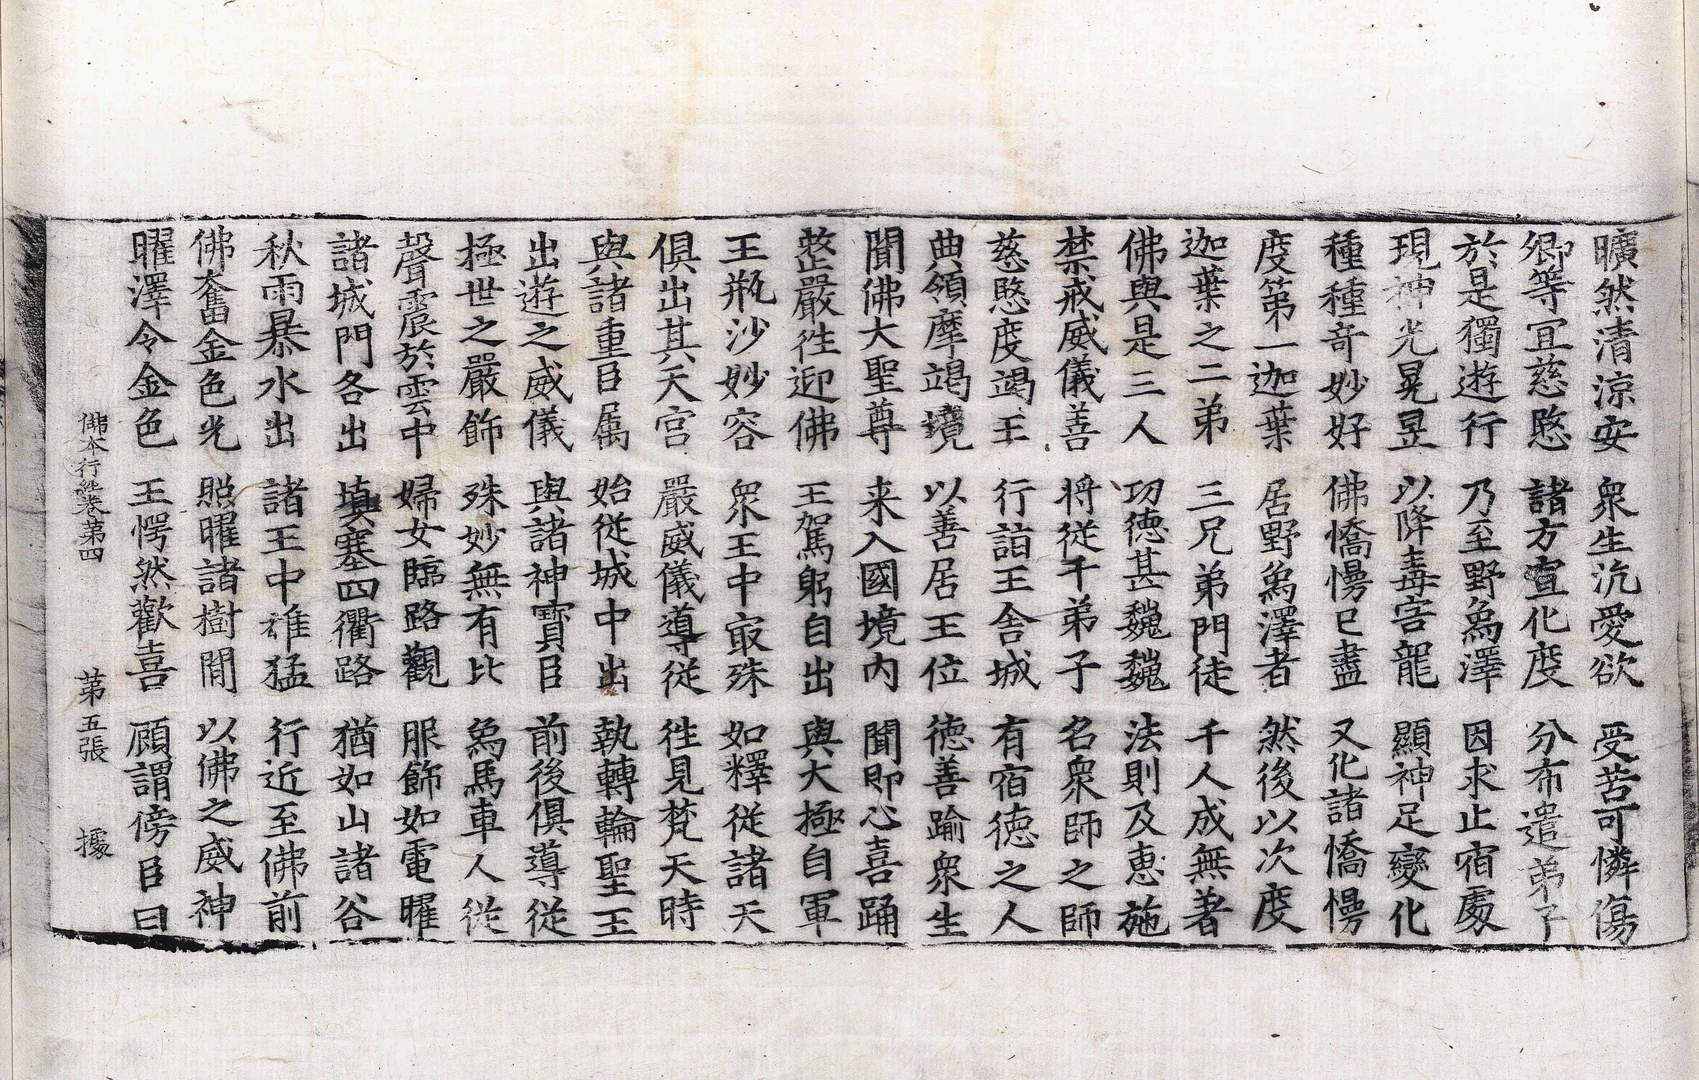 曠然清涼安　眾生沉愛欲　受苦可憐傷
卿等宜慈愍　諸方宣化度　分布遣弟子
於是獨遊行　乃至野為澤　因求止宿處
現神光晃昱　以降毒害龍　顯神足變化
種種奇妙好　佛憍慢已盡　又化諸憍慢
度第一迦葉　居野為澤者　然後以次度
迦葉之二弟　三兄弟門徒　千人成無著
佛與是三人　功德甚魏魏　法則及惠施
禁戒威儀善　將從千弟子　名眾師之師
慈愍度竭王　行詣王舍城　有宿德之人
典領摩竭境　以善居王位　德善踰眾生
聞佛大聖尊　来入國境內　聞即心喜踊
整嚴徃迎佛　王駕躬自出　與大極自軍
王瓶沙妙容　眾王中㝡殊　如釋從諸天
俱出其天宮　嚴威儀導從　徃見梵天時
與諸重臣属　始從城中出　執轉輪聖王
出遊之威儀　與諸神寶臣　前後俱導從
極世之嚴飾　殊妙無有比　為馬車人從
聲震於雲中　婦女臨路觀　服飾如電曜
諸城門各出　填塞四衢路　猶如山諸谷
秋雨暴水出　諸王中雄猛　行近至佛前
佛奮金色光　照曜諸樹閒　以佛之威神
曜澤令金色　王愕然歡喜　顧謂傍臣曰
佛本行經卷第四　第五張　據